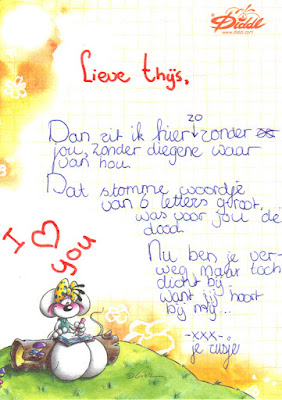 Diddl
www.diddl.com
Lieve thijs,
Dan zit ik hier zo zonder
jou, zonder diegene waar
'k van hou.
Dat stomme woordje
van 6 letters groot,
was voor jou de
dood.
Nu ben je ver-
weg maar toch
dicht bij
want jij hoort
bij mij...
-xxx-
je zusje
I ♡ you